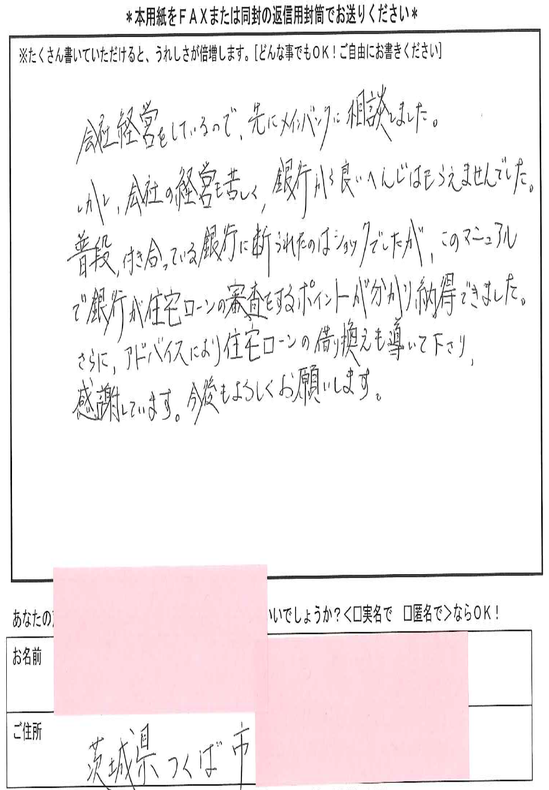 *本用紙をFAXまたは同封の返信用封筒でお送りください*
※たくさん書いていただけると、うれしさが倍増します。[どんな事でもOK!ご自由にお書きください]
会社経営をしているので、先にメインバンクに相談しました。
しかし、会社の経営も苦しく、銀行から良いへんじはもらえませんでした。
普段、付き合っている銀行に断られたのはショックでしたが、このマニュアル
で銀行が住宅ローンの審査をするポイントが分かり納得できました。
さらに、アドバイスにより住宅ローンの借り換えも導いて下さり、
感謝しています。今後もよろしくお願いします。
あなたの
いいでしょうか?<□実名で □匿名で>ならOK!
お名前
ご住所
茨城県つくば市